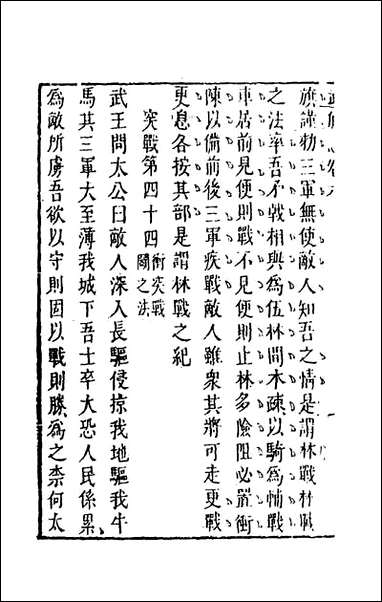 旗謹勑三軍無使敵人知吾之情是謂林戰林戰
之法率吾矛戟相與為伍林間木疎以騎為輔戰
車居前見便則戰不見便則止林多險阻必置衝
陳以備前後三軍疾戰敵人雖衆其將可走更戰
更息各按其部是謂林戰之紀
突戰第四十四衝突戰鬬之法
武王問太公曰敵人深入長驅侵掠我地驅我牛
馬其三軍大至薄我城下吾士卒大恐人民係累
為敵所虜吾欲以守則固以戰則勝為之柰何太